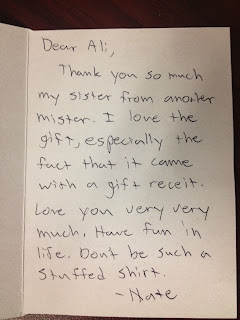 Dear Ali,
Thank you so much
my sister from anoter
mister. I love the
gift, especially the
fact that it came
with a gift receit.
Love you very very
much. Have fun in
life. Don't be such a
stuffed shirt.
- Nate